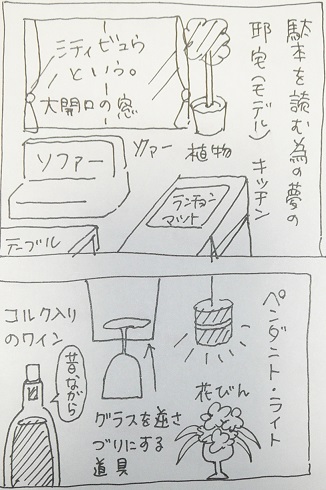 駄本を読む為の夢の
邸宅(モデル) キッチン
シティビュら
という。
大開口の窓
植物
ソファー
ランチョン
マット
テーブル
ペンダント・ライト
花びん
グラスを逆さ
づりにする
道具
コルク入り
のワイン
昔ながら